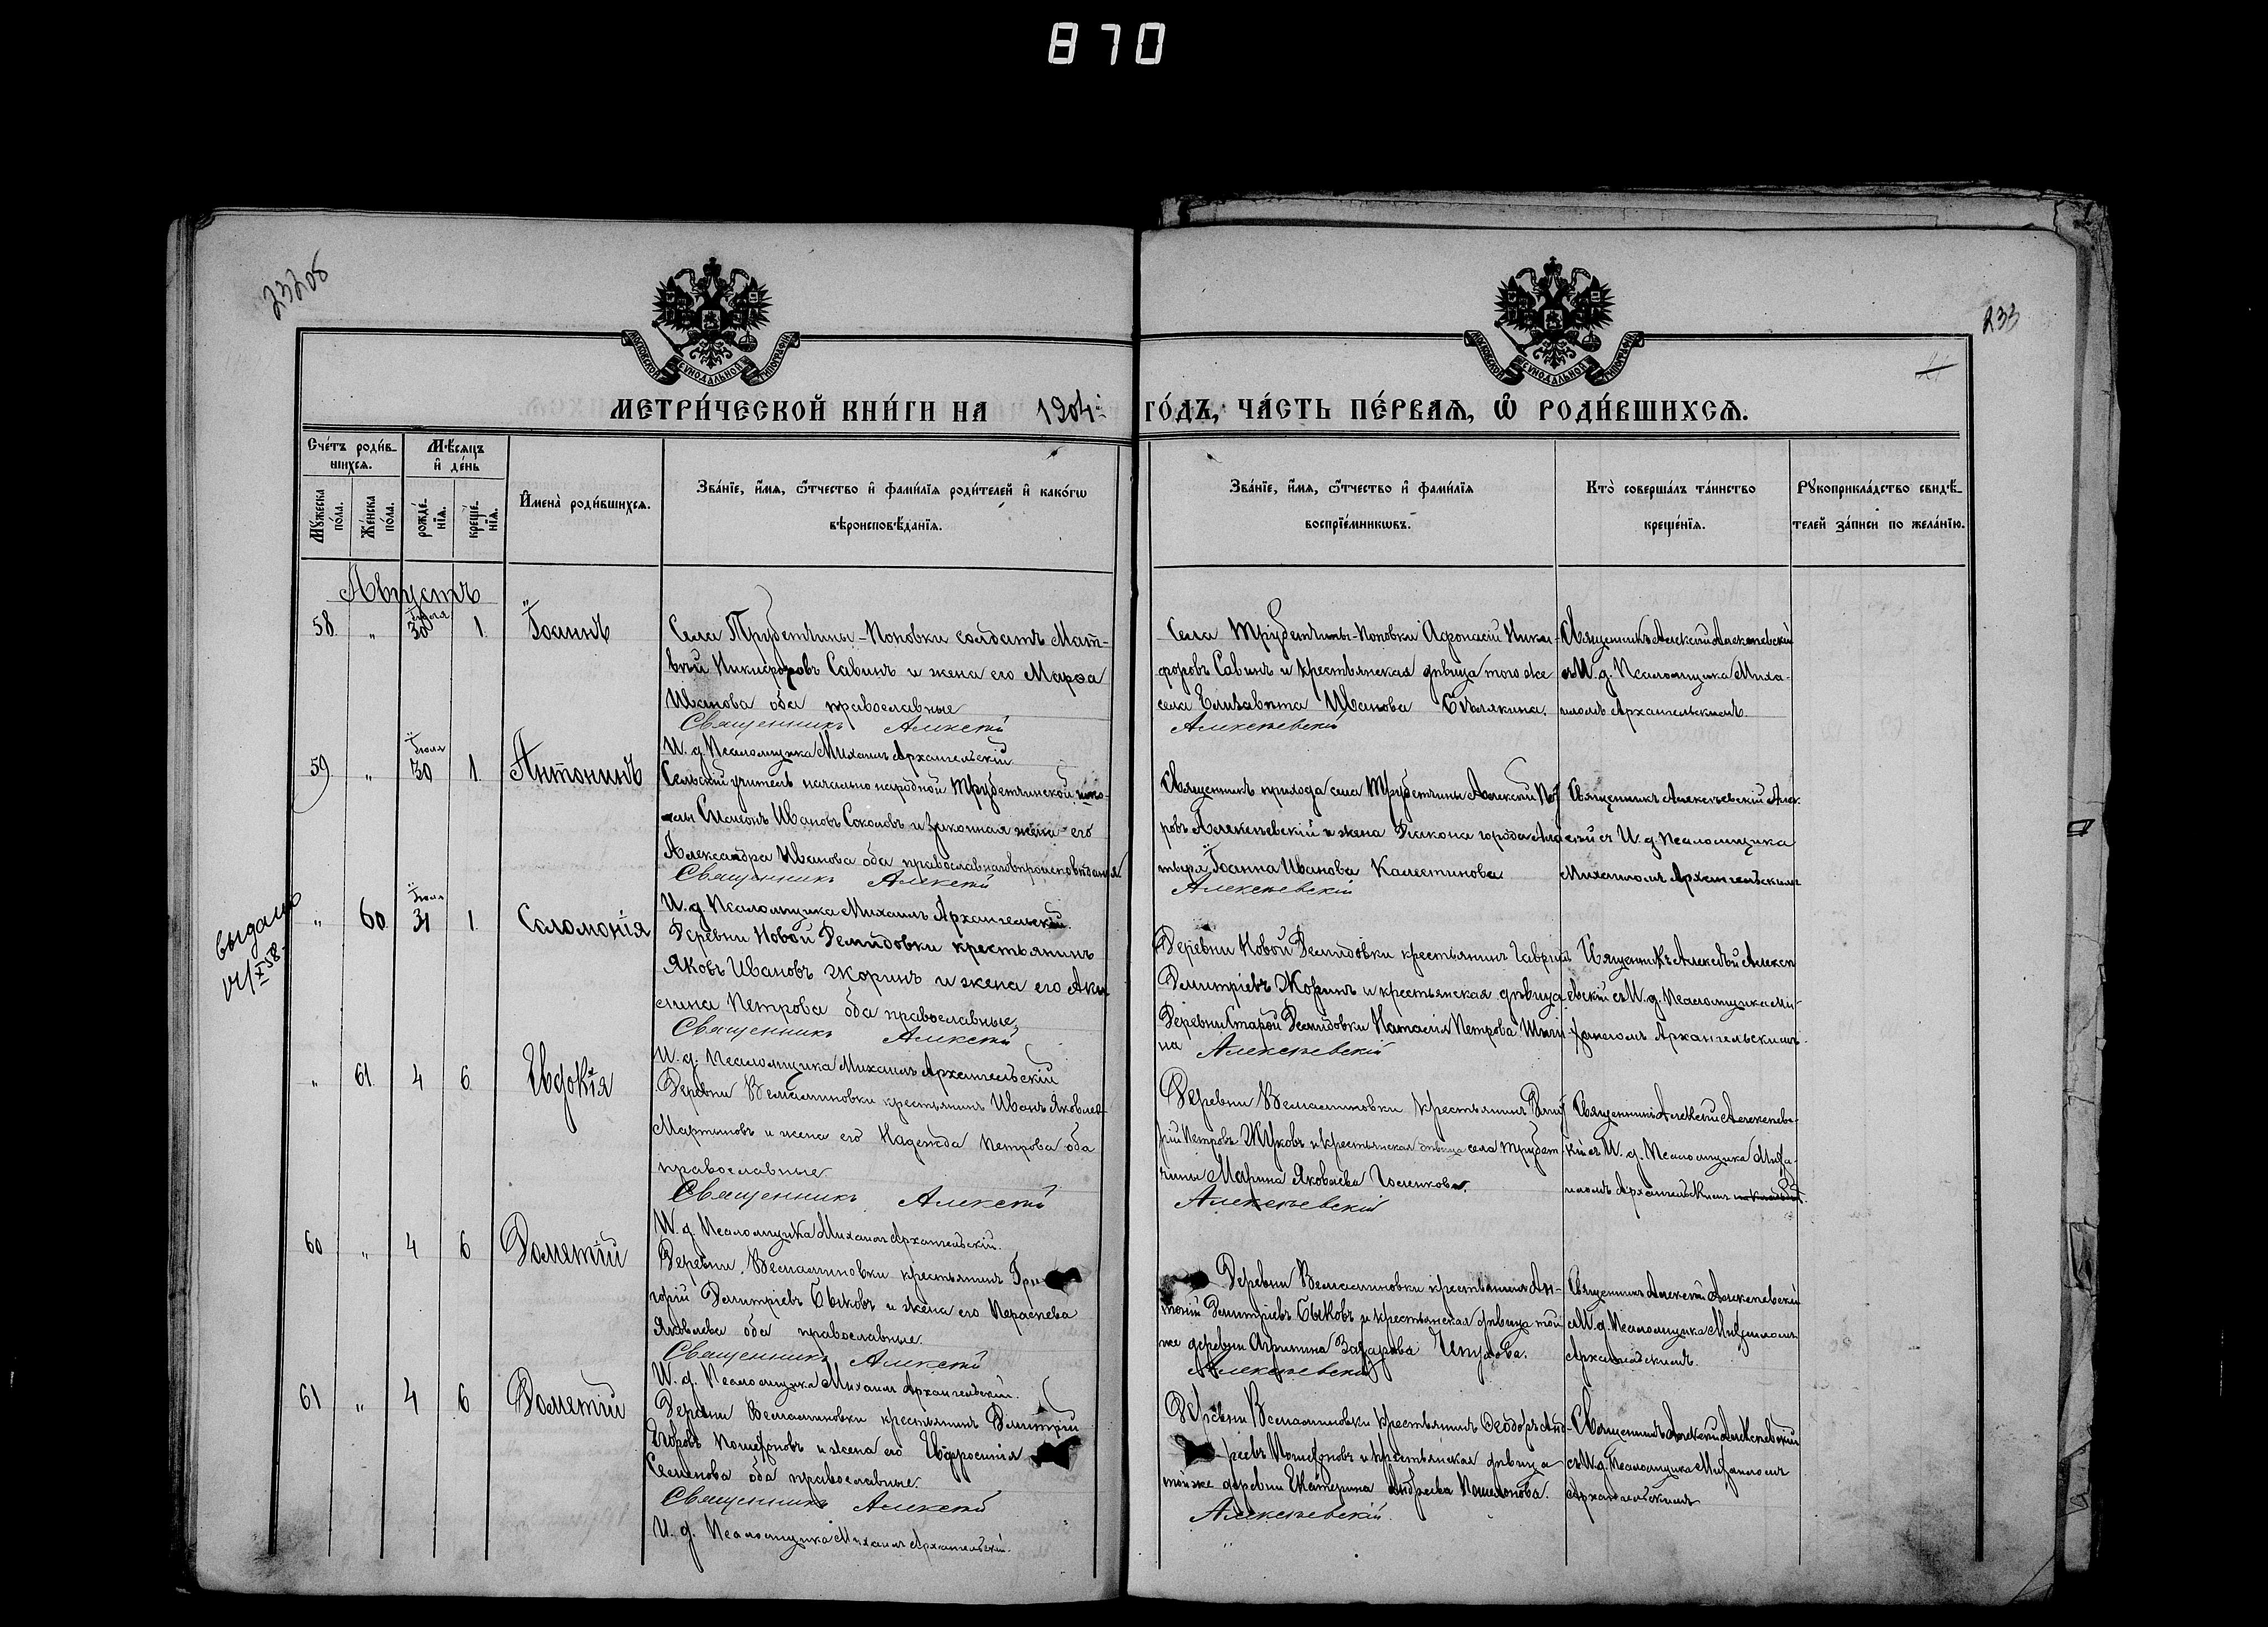 870
233
МОСКОВСКОЙ СѴНОДАЛЬНОЙ ТИПОГРАФІИ
МОСКОВСКОЙ СѴНОДАЛЬНОЙ ТИПОГРАФІИ
МЕТРИ́ЧЕСКОЙ КНИ́ГИ НА 1904 ГО́ДЪ, ЧА́СТЬ ПЕ́РВАѦ, Ѡ҆ РОДИ́ВШИХСѦ.
Сче́тъ роди́в-
шихсѧ.
Мѣ́сяцъ
и҆ де́нь
Мꙋ́жеска
по́ла.
Же́нска
по́ла.
рожде́-
нїѧ.
креще́-
нїѧ.
И҆мена̀ роди́вшихсѧ.
Зва́нїе, и҆́мѧ, ѻ҆́тчество и҆ фами́лїѧ роди́телей и҆ како́гѡ
вѣроисповѣ́данїѧ.
Зва́нїе, и҆́мѧ, ѻ҆́тчество и҆ фами́лїѧ
воспрїе́мникѡвъ.
Кто̀ соверша́лъ та́инство
креще́нїѧ.
Рꙋкоприкла́дство свидѣ́-
телей за́писи по жела́нїю.
Августъ
58 " Іюля 30 1 Іоаннъ
Села Трубетчины-Поповки солдатъ Мат-
вѣй Никифоровъ Савинъ и жена его Марѳа
Иванова оба православные
Священникъ Алексѣй
И. д. Псаломщика Михаилъ Архангельскій
Села Трубетчины-Поповки Афонасій Ники-
форовъ Савинъ и крестьянская дѣвица того же
села Елизавѣта Иванова Бѣлякина.
Алексѣевскій
Священникъ Алексѣй Алексѣевскій
съ И. д. Псаломщика Миха-
иломъ Архангельскимъ.
59 " Іюля 30 1 Антонинъ
Сельскій учитель начально народной Трубетчинской шко-
лы Симеонъ Ивановъ Соколовъ и законная жена его
Александра Иванова оба православнаго вѣроисповѣданія
Священникъ Алексѣй
И. д. Псаломщика Михаилъ Архангельскій.
Священникъ прихода села Трубетчины Алексѣй Пет
ровъ Алексѣевскій и жена Діакона города Ала
тыря Іоанна Иванова Калестинова
Алексѣевскій
Священникъ Алексѣевскій Алек
сѣй съ И. д. Псаломщика
Михаиломъ Архангельскимъ
выдано
" 60 Іюля 31 1 Соломонія
Деревни Новой Демидовки крестьянинъ
Яковъ Ивановъ Жоринъ и жена его Аку
лина Петрова оба православные
Священникъ Алексѣй
И. д. Псаломщика Михаилъ Архангельскій
Деревни Новой Демидовки крестьянинъ Гаврилъ
Димитріевъ Жоринъ и крестьянская дѣвица
Деревни Старой Демидовки Наталія Петрова
на Алексѣевскій
Священникъ Алексѣй Алексѣ
евскій съ И. д. Псаломщика Ми-
хаиломъ Архангельскимъ.
" 61 4 6 Евдокія
Деревни крестьянинъ Иванъ Яковлевъ
Мартыновъ и жена его Надежда Петрова оба
православные
Священникъ Алексѣй
И. д. Псаломщика Михаилъ Архангельскій.
Деревни крестьянинъ
Петровъ Жуковъ и крестьянская дѣвица села Трубет-
чины Марина Яковлева Голенкова.
Алексѣевскій
Священникъ Алексѣй Алексѣевс-
кій съ И. д. Псаломщика Миха-
иломъ Архангельскимъ
60 " 4 6 Дометій
Деревни крестьянинъ Гри
горій Димитріевъ Быковъ и жена его Параскева
Яковлева оба православные.
Священникъ Алексѣй
И. д. Псаломщика Михаилъ Архангельскій.
Деревни крестьянинъ Ан-
тоній Димитріевъ Быковъ и крестьянская дѣвица той
же деревни Агрипина Захарова
Алексѣевскій
Священникъ Алексѣй Алексѣевскій
съ И. д. Псаломщика Михаиломъ
Архангельскимъ.
61 " 4 6 Дометій
Деревни крестьянинъ Димитрій
Егоровъ и жена его Евфросинія
Семенова оба православные.
Священникъ Алексѣй
И. д. Псаломщика Михаилъ Архангельскій.
Деревни крестьянинъ Ѳеодоръ Анд-
реевъ и крестьянская дѣвица
той же деревни Екатерина Андреева
Алексѣевскій.
Священникъ Алексѣй Алексѣевскій
съ И. д. Псаломщика Михаиломъ
Архангельскимъ